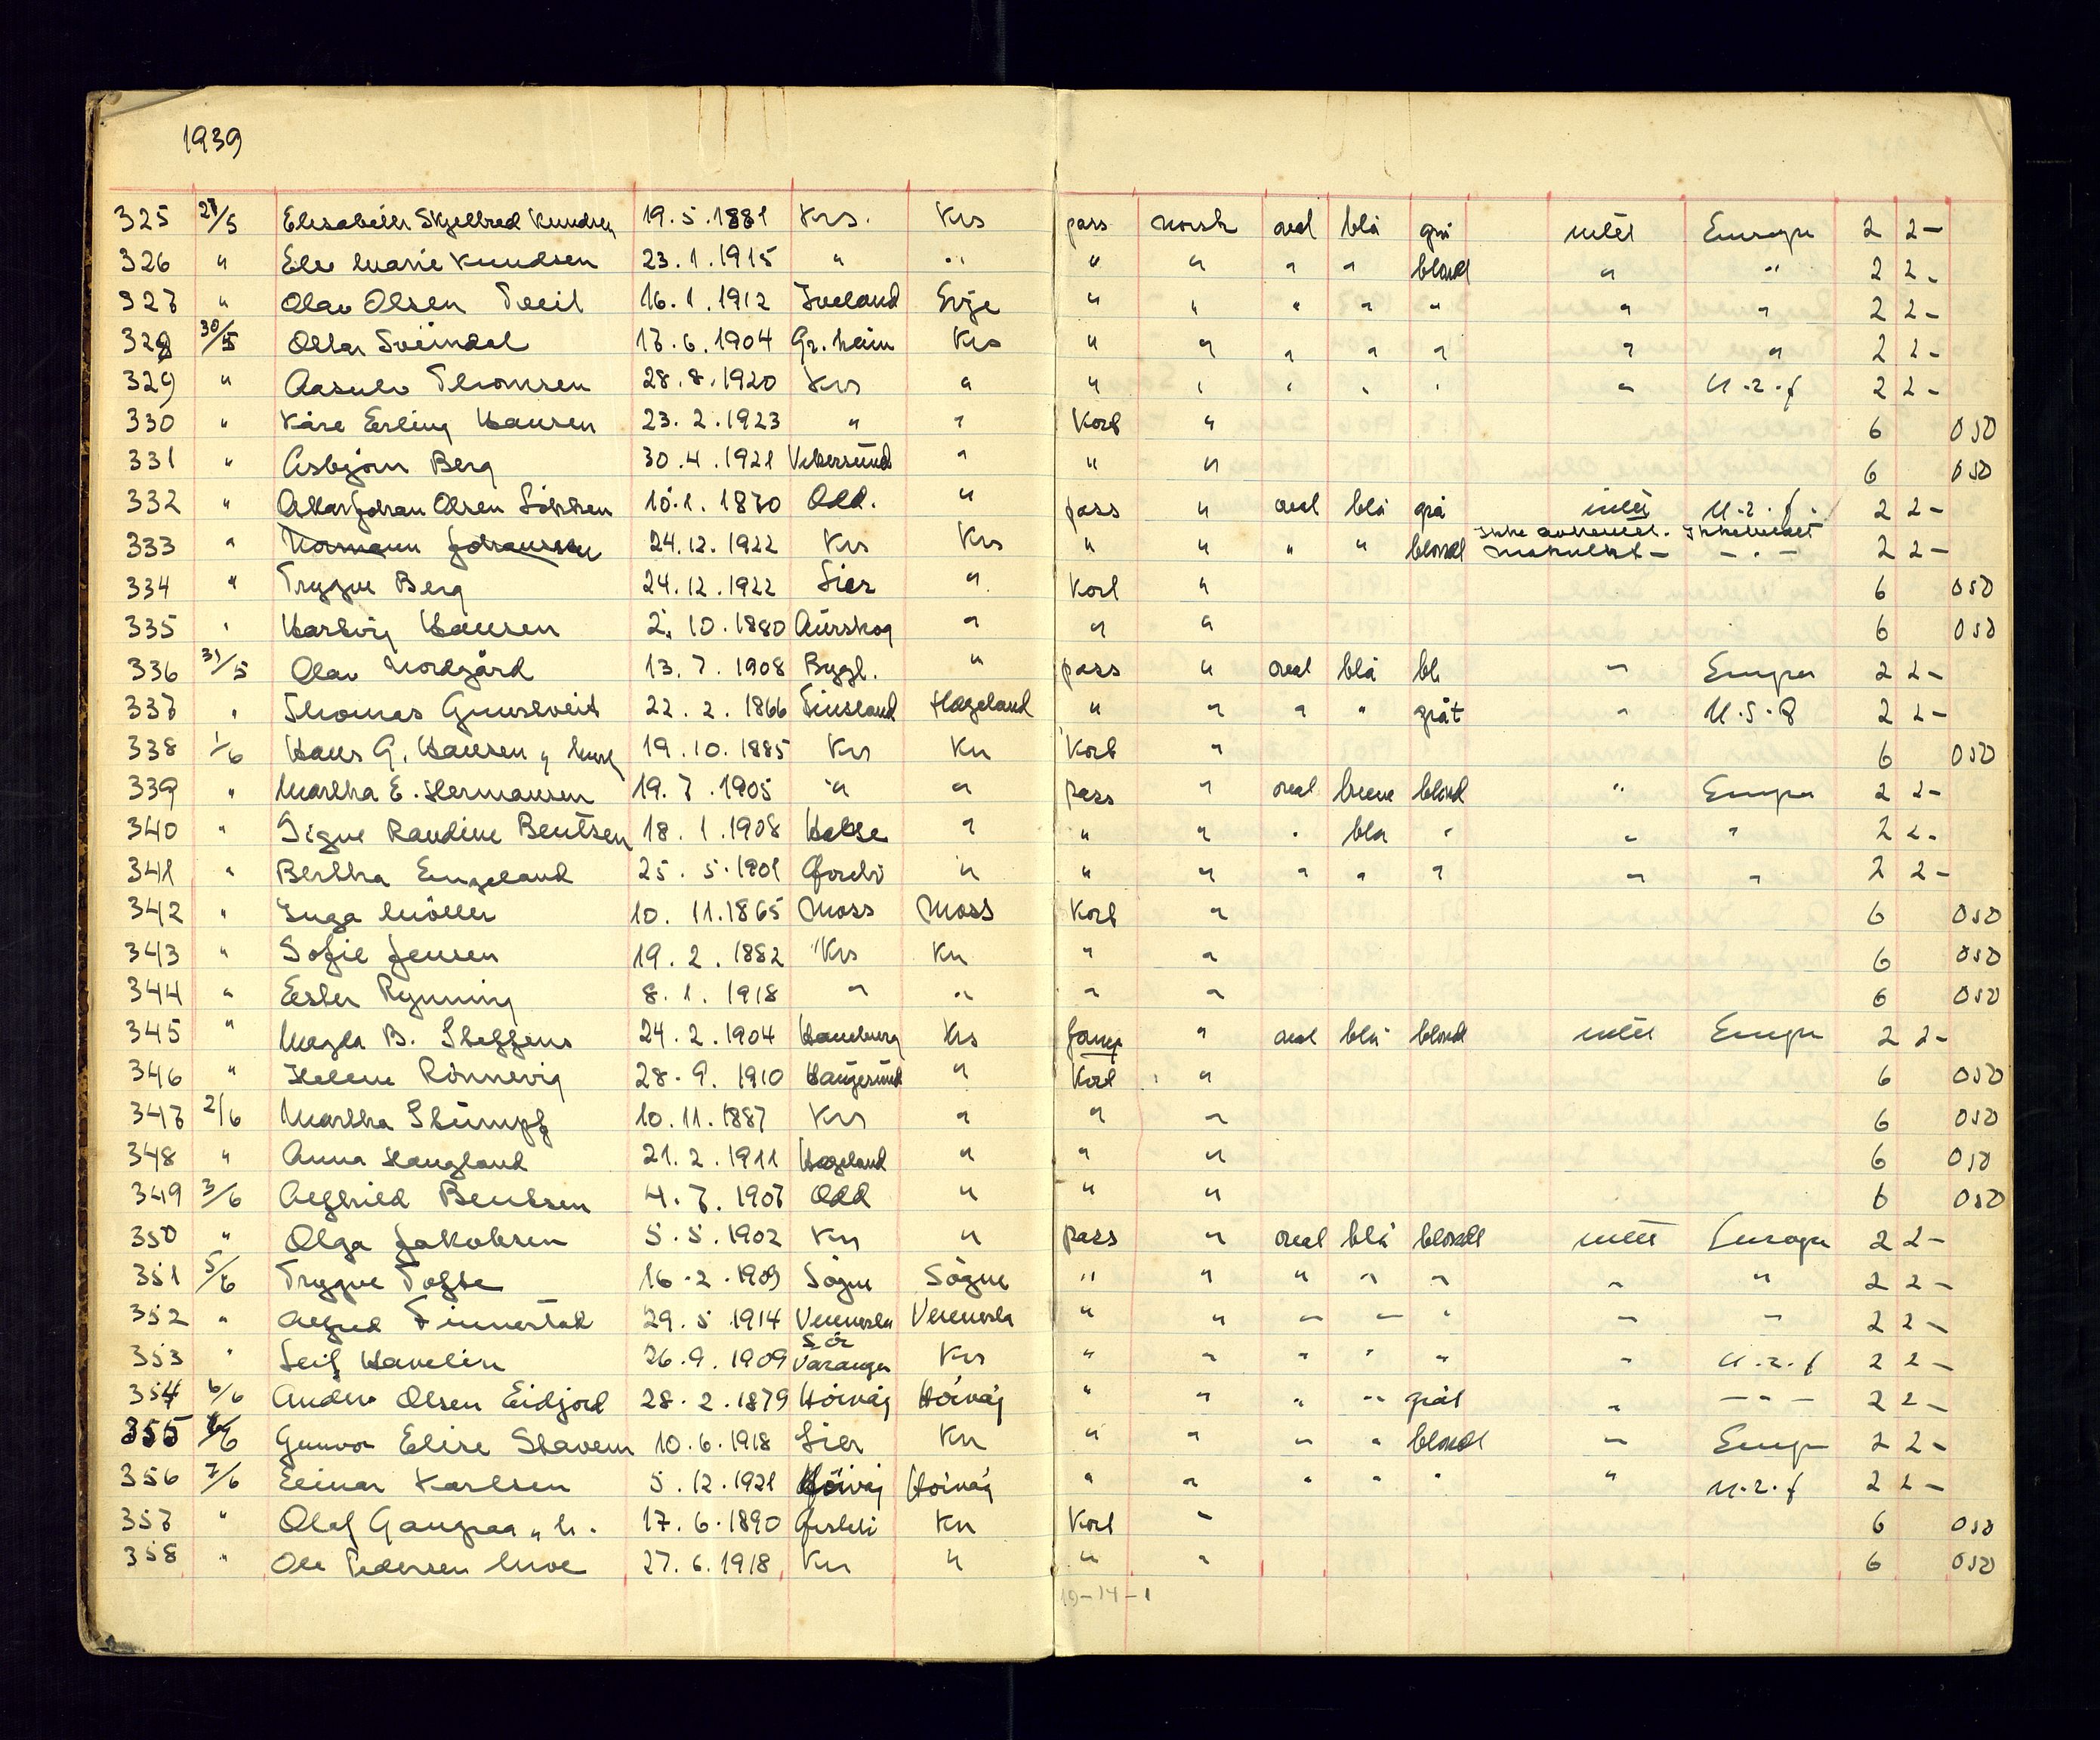 1939
325 27/5 Elisabeth Skjelbred Knudsen 19.5.1881 Krs. Krs pass norsk oval blå grå intet Europa 2 2-
326 " Else Marie Knudsen 23.1.1915 " " " " " " blond " " 2 2-
327 " Olav Olsen Tveit 16.1.1912 Iveland Evje " " " " " " " 2 2-
328 30/5 Ottar Sveindal 17.6.1904 Gr.heim Krs " " " " " " " 2 2-
329 " Aasulv Thomsen 28.8.1920 Krs " " " " " " " U.2.f 2 2-
330 " Kåre Erling Hansen 23.2.1923 " " Kort " 6 050
331 " Asbjörn Berg 30.4.1921 Vikersund " " " 6 050
332 " Olsen 10.1.1870 Odd. " pass " oval blå grå intet U.2.f. 2 2-
333 " Normann Johanssen 24.12.1922 Krs Krs " " " " blond Ikke avhentet. Makulert - Ikke - " - 2 2-
334 " Trygve Berg 24.12.1922 Lier " Kort " 6 050
335 " Hartvig Hansen 2.10.1880 Aurskog " " " 6 050
336 31/5 Olav Nordgård 13.7.1908 Bygl. " pass " oval blå bl. " Europa 2 2-
337 " Thomas Gunsveit 22.2.1866 Finsland Hægeland " " " " gråt " U.S.A 2 2-
338 1/6 Hans G. Hansen 19.10.1885 Krs Krs Kort " 6 050
339 " Martha E. Hermansen 19.7.1905 " " pass " oval brune blond " Europa 2 2-
340 " Signe Randine Bentsen 18.1.1908 Halse " " " " blå " " " 2 2-
341 " Berthea Engeland 25.5.1901 Gjerstad " " " " " " " " 2 2-
342 " Inga Möller 10.11.1865 Moss Moss Kort " 6 050
343 " Sofie Jensen 19.2.1882 Krs Krs " " 6 050
344 " Ester Rynning 8.1.1918 " " " " 6 050
345 " Magda B. Steffens 24.2.1904 Hamburg Krs " oval blå blond intet Europa 2 2-
346 " Helene Rönnevig 28.9.1910 Haugesund " Kort " 6 050
347 2/6 Martha Stumpf 10.11.1887 Krs " " " 6 050
348 " Anna Haugland 21.2.1911 Hægeland " " " 6 050
349 3/6 Alfhild Bentsen 4.7.1907 Odd " " " 6 050
350 " Olga Jakobsen 5.5.1902 Krs " pass " oval blå blondt intet Europa 2 2-
351 5/6 Trygve Tofte 16.2.1909 Sögne Sögne " " " " " " " 2 2-
352 " Finnestad 29.5.1914 Vennesla Vennesla " " " " " " " 2 2-
353 " Leif Havelin 26.9.1909 Sör Varanger Krs " " " " " " U.2.f 2 2-
354 6/6 Anders Olsen Eidjord 28.2.1879 Höivåg Höivåg " " " " gråt " - " - 2 2-
355 6/6 Gunvor Elise Stavem 10.6.1918 Lier Krs " " " " blondt " Europa 2 2-
356 7/6 Einar Karlsen 5.12.1921 Höivåg Höivåg " " " " " " U.2.f 2 2-
357 " Olaf Gangraa 17.6.1890 Krs Kort " 6 050
358 " Ole Pedersen Moe 27.6.1918 Krs " " " 6 050
19-14-1